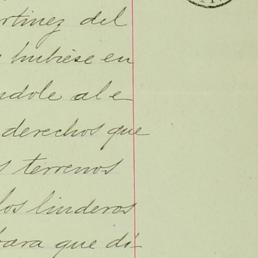 rtinez del
hubiése en
ndole al e
derechos que
s terrenos
los linderos
para que di-